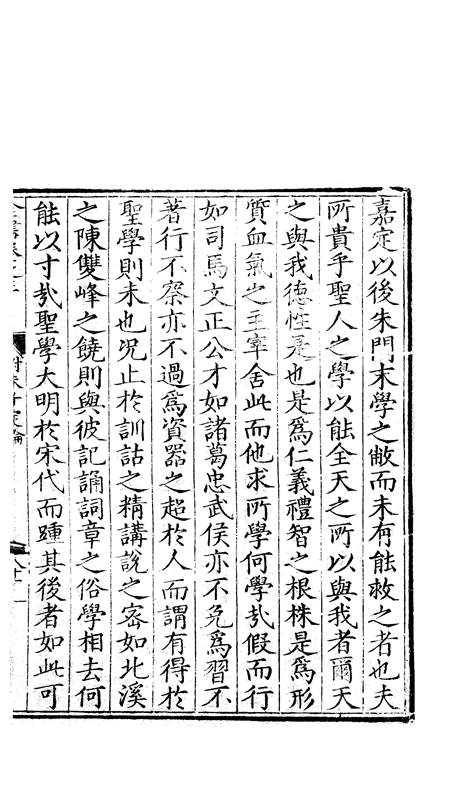 嘉定以後朱門末學之敝而未有能救之者也夫
所貴乎聖人之學以能全天之所以與我者爾天
之與我德性是也是爲仁義禮智之根株是爲形
質血氣之主宰舍此而他求所學何學㢤假而行
如司馬文正公才如諸葛忠武侯亦不免爲習不
著行不察亦不過爲資器之超於人而謂有得於
聖學則未也况止於訓詁之精講說之宻如北溪
之陳雙峰之饒則與彼記誦詞章之俗學相去何
能以寸㢤聖學大明於宋代而踵其後者如此可